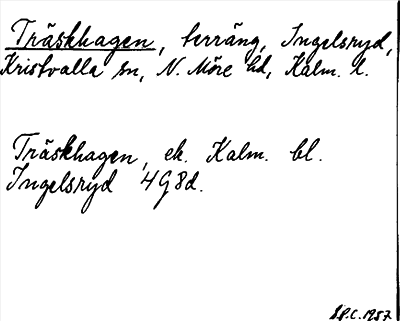 Träskhagen, terräng, Ingelsryd,
Kristvalla sn, N. Möre hd, Kalm. l.
Träskhagen, ek. Kalm. bl.
Ingelsryd 4G8d.
S.P.C. 1957